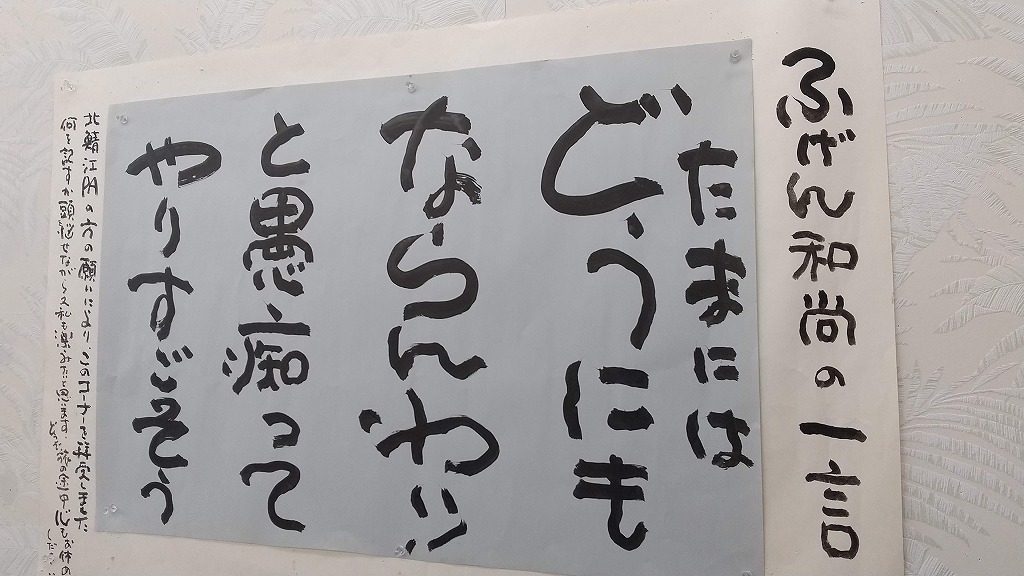 ふげん和尚の一言
たまには
どうにも
ならんわい
と愚痴って
やりすごそう
北鯖江PAの方の願いにより このコーナーを拝受しました
何を記すか頭悩せながら又私も楽みたいと思います
旅の途中 心もお体の